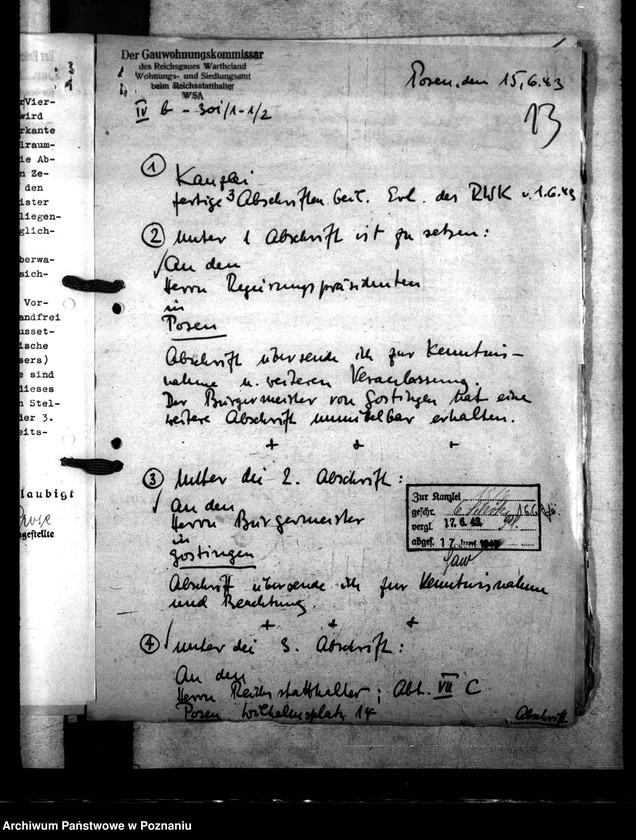 Der Gauwohnungskommissar
des Reichsgaues Wartheland
Wohnungs- und Siedlungsamt
beim Reichsstatthalter
WSA
IV b - 301/1-1/2
Posen, den 15.6.43
13
① Kanzlei
fertige 3 Abschriften Erl. des RWK v. 1.6.43
② Unter 1 Abschrift ist zu setzen:
An den
Herrn Regierungspräsidenten
in
Posen
Abschrift übersende ich zur Kenntnis-
nahme u. weiteren Veranlassung.
Der Bürgermeister von Gostingen hat eine
weitere Abschrift unmittelbar erhalten.
+ + +
③ Unter die 2. Abschrift:
An den
Herrn Bürgermeister
in
Gostingen
Abschrift übersende ich zur Kenntnisnahme
und Beachtung.
+ + +
④ Unter die 3. Abschrift:
An den
Herrn Reichsstatthalter; Abt. VII C
Posen Wilhelmsplatz 14
Abschrift
Zur Kanzlei
geschr. 16.6.
vergl. 17.6.43
abges. 17. Juni 1943
rVier-
wird
rkante
lraum-
ie Ab-
n Ze-
den
ister
liegen-
glich-
berwa-
sich-
Vor-
andfrei
usset-
ische
sers)
e sind
dieses
n Stel-
der 3.
eits-
laubigt
ngestellte
Archiwum Państwowe w Poznaniu